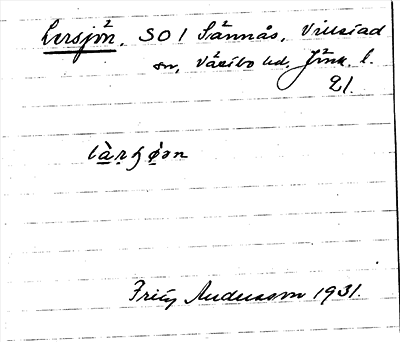 Lersjön, SO I Sännås, Villstad
sn, Västbo hd, Jönk. l.
21.
là̱r̥ʒø̱̀ən
Fritz Andersson 1931.